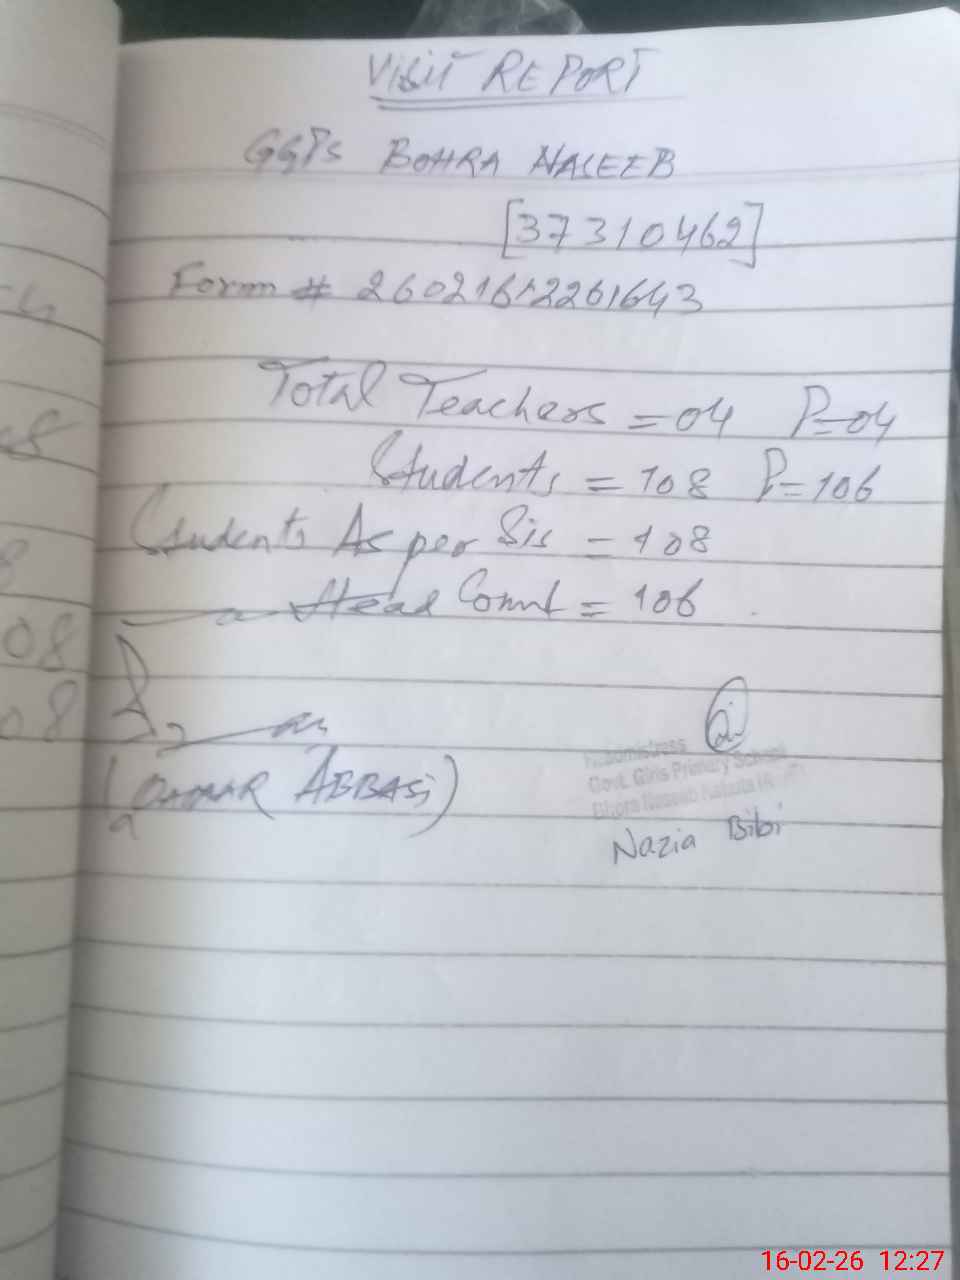 VISIT REPORT
GGPS BOHRA NASEEB
[37310462]
Form # 260216122261643
Total Teachers = 04 P=04
Students = 108 P=106
Students As per Sis = 108
Head Count = 106
ABBASi)
Headmistress
Govt. Girls Primary School
Bhora Naseeb
Nazia Bibi
08
08
16-02-26 12:27